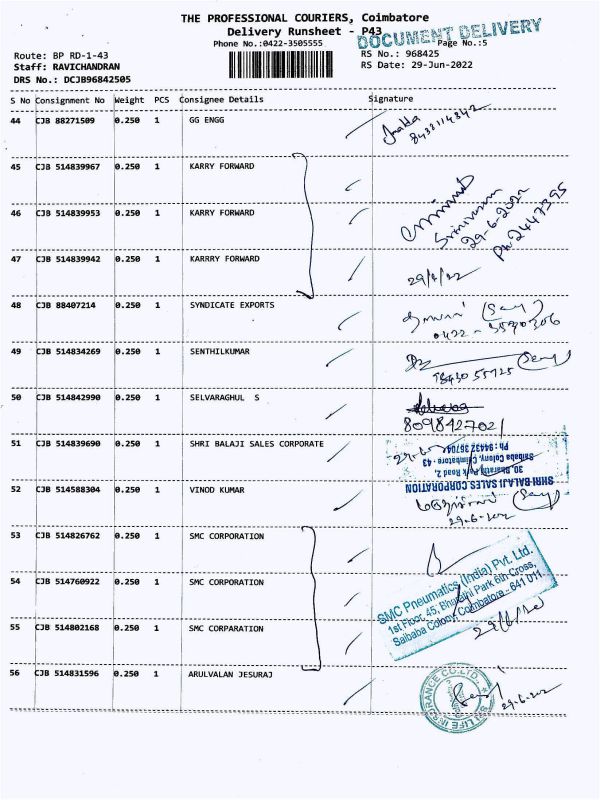 THE PROFESSIONAL COURIERS, Coimbatore
Delivery Runsheet - P43
DOCUMENT DELIVERY
Phone No.:0422-3505555
Page No.:5
Route: BP RD-1-43
RS No.: 968425
Staff: RAVICHANDRAN
RS Date: 29-Jun-2022
DRS No.: DCJB96842505
S No Consignment No Weight PCS Consignee Details Signature
44 CJB 88271509 0.250 1 GG ENGG
8438114342
45 CJB 514839967 0.250 1 KARRY FORWARD
46 CJB 514839953 0.250 1 KARRY FORWARD
Srinivasan
29-6-2022
Ph 2447395
47 CJB 514839942 0.250 1 KARRRY FORWARD
48 CJB 88407214 0.250 1 SYNDICATE EXPORTS
0422 - 3530306
49 CJB 514834269 0.250 1 SENTHILKUMAR
50 CJB 514842990 0.250 1 SELVARAGHUL S
8098427021
51 CJB 514839690 0.250 1 SHRI BALAJI SALES CORPORATE
SHRI BALAJI SALES CORPORATION
30, Bharathi Park Road 2,
Saibaba Colony, Coimbatore - 43
Ph : 94432 36704
52 CJB 514588304 0.250 1 VINOD KUMAR
53 CJB 514826762 0.250 1 SMC CORPORATION
54 CJB 514760922 0.250 1 SMC CORPORATION
SMC Pneumatics (India) Pvt. Ltd.
1st Floor, 45, Bharathi Park 6th Cross,
Saibaba Colony, Coimbatore - 641 011
55 CJB 514802168 0.250 1 SMC CORPARATION
56 CJB 514831596 0.250 1 ARULVALAN JESURAJ